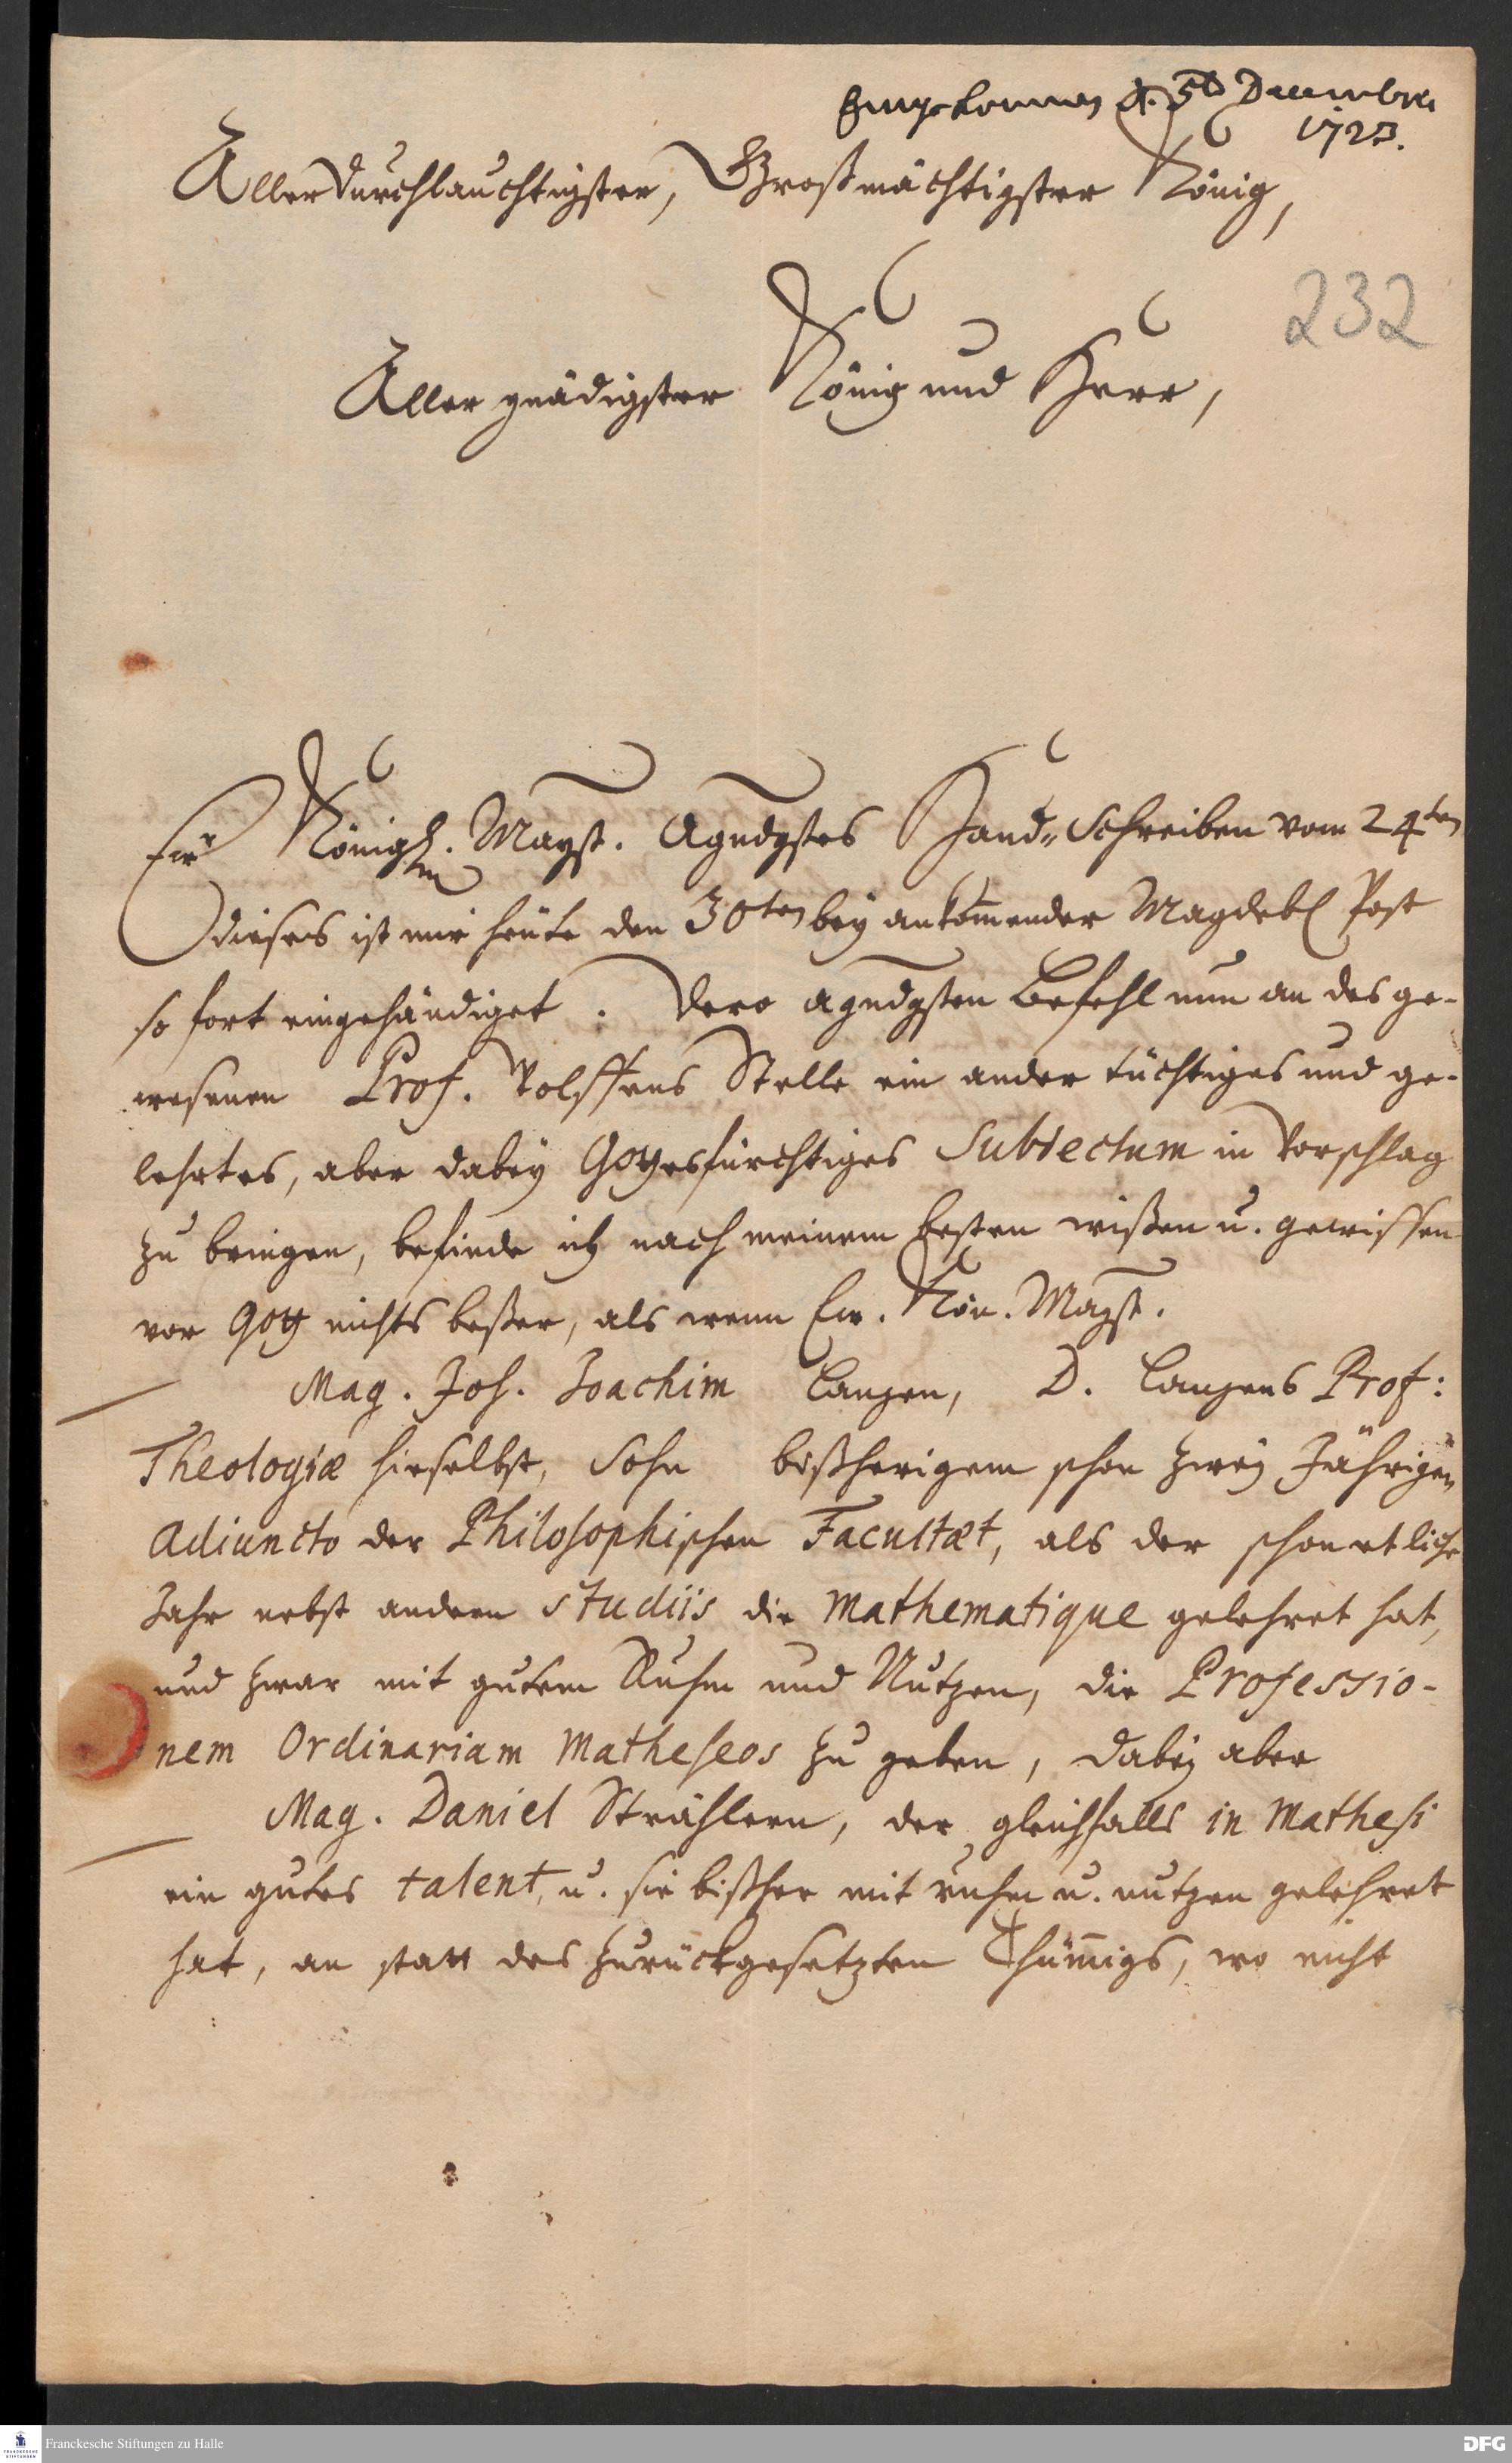 Eingekommen d. 5t Decembris
1723.
Allerdurchlauchtigster, Großmächtigster König,
232
Allergnädigster König und Herr,
Ew Königl. Mayst. Agndgstes Hand-Schreiben vom 24ten
dieses ist mir heüte den 30ten bey ankom̄ender Magdebl Post
so fort eingehändiget. Dero agndgsten Befehl nun an des ge-
wesenen Prof. Wolffens Stelle ein ander tüchtiges und ge-
lehrtes, aber dabey Gottesfürchtiges Subiectum in Vorschlag
zu bringen, befinde ich nach meinem besten wißen u. gewissen
vor Gott nichts beßer, als wenn Ew. Kön. Mayst.
Mag. Joh. Joachim Langen, D. Langens Prof:
Theologiæ hieselbst, Sohn bißherigem schon zwey Jährigen
Adiuncto der Philosophischen Facultæt, als der schon etliche
Jahr nebst andern studiis die Mathematique gelehret hat,
und zwar mit gutem Ruhm und Nutzen, die Professio-
nem Ordinariam Matheseos zu geben, dabey aber
Mag. Daniel Strählern, der gleichfalls in Mathesi
ein gutes talent, u. sie bißher mit ruhm u. nutzen gelehret
hat, an statt des zurückgesetzten Thüm̄igs, wo nicht
Franckesche Stiftungen zu Halle
DFG